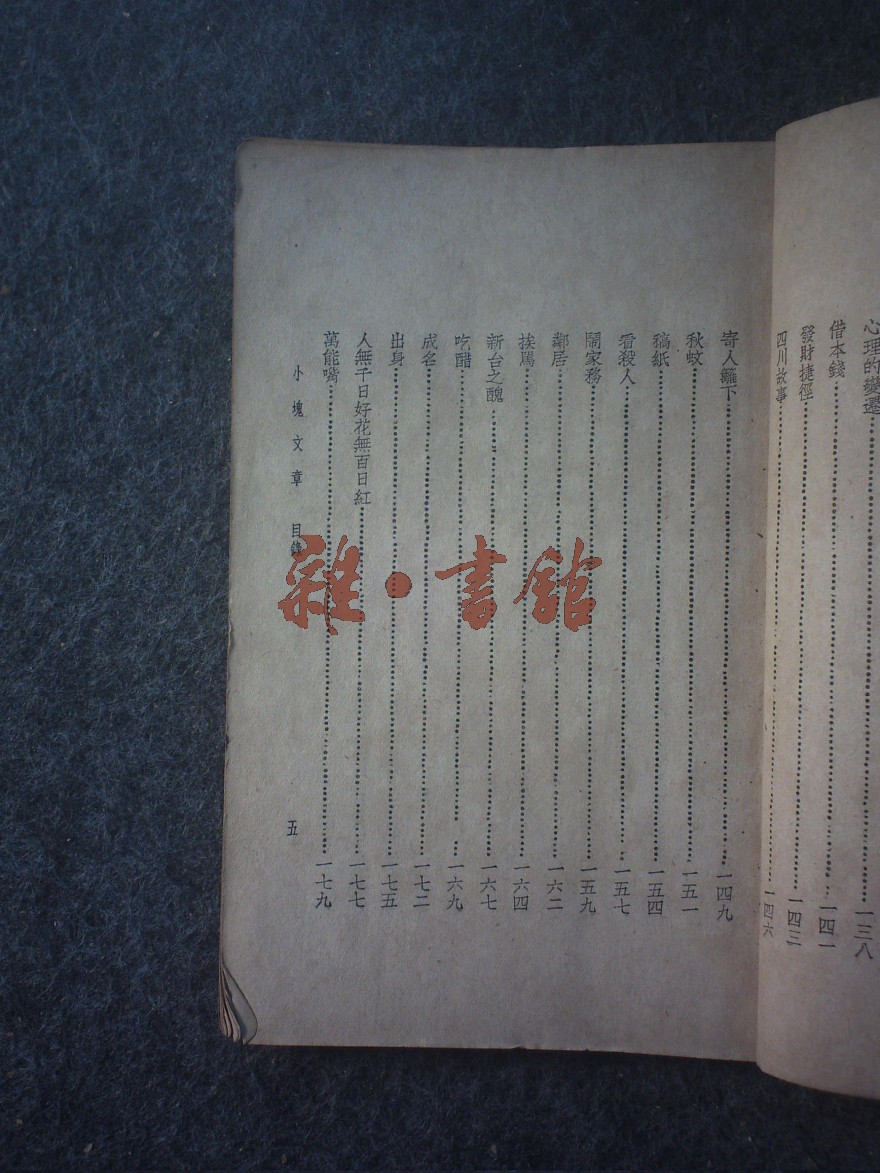 心理的變遷⋯⋯一三八
借本錢⋯⋯一四一
發財捷徑⋯⋯一四三
四川故事⋯⋯一四六
寄人籬下⋯⋯一四九
秋蚊⋯⋯一五一
稿紙⋯⋯一五四
看殺人⋯⋯一五七
鬧家務⋯⋯一五九
鄰居⋯⋯一六二
挨罵⋯⋯一六四
新台之醜⋯⋯一六七
吃醋⋯⋯一六九
成名⋯⋯一七二
出身⋯⋯一七五
人無千日好花無百日紅⋯⋯一七七
萬能嘴⋯⋯一七九
小塊文章 目錄 五
雜·書館